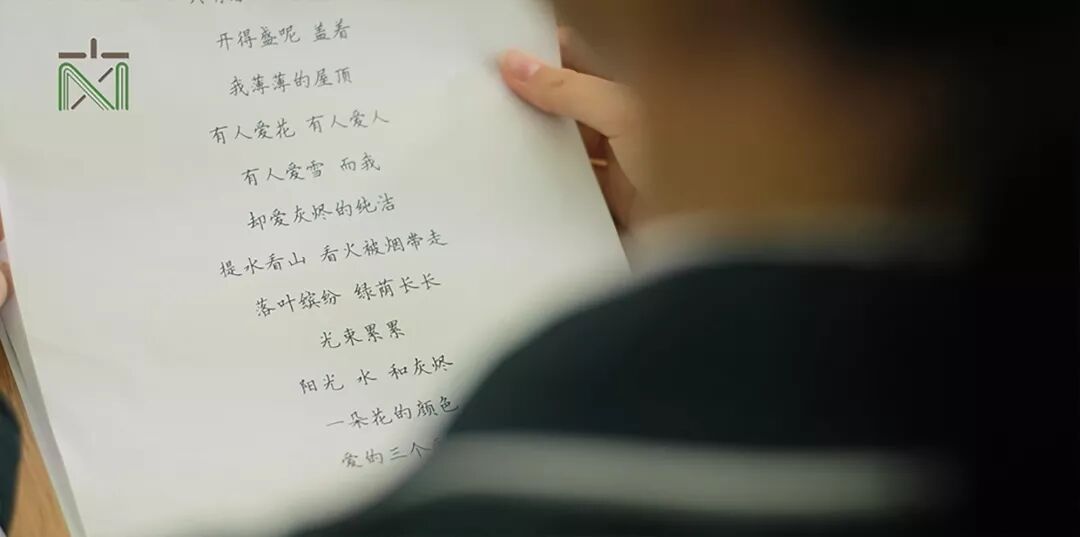 开得盛呢 盖着
我薄薄的屋顶
有人爱花 有人爱人
有人爱雪 而我
却爱灰烬的纯洁
提水看山 看火被烟带走
落叶缤纷 绿荫长长
光束累累
阳光 水 和灰烬
一朵花的颜色
爱的三个